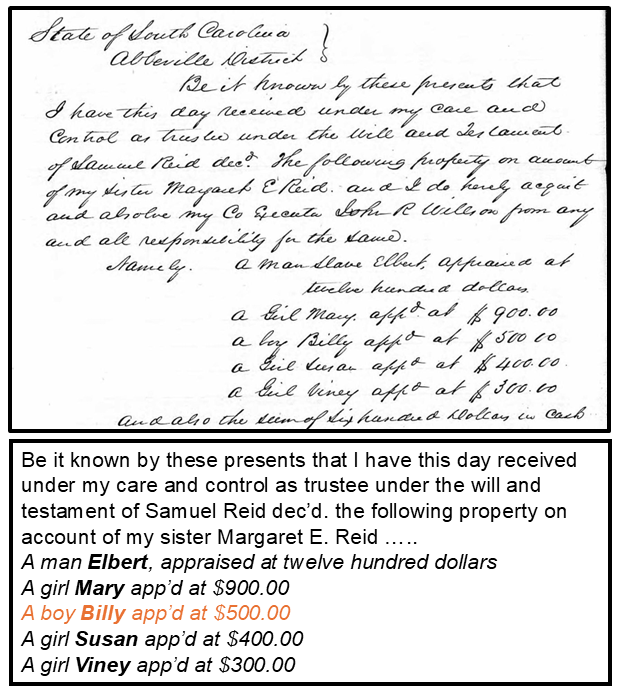 State of South Carolina
Abbeville District
Be it known by these presents that
I have this day received under my care and
Control as trustee under the Will and Testament
of Samuel Reid decd. The following property on account
of my sister Margaret E Reid. and I do herely acquit
and absolve my Co Executor John R Willson from any
and all responsibility for the same.
Namely. a man slave Elbert, appraised at
twelve hundred dollars
a Girl Mary. appd. at $900.00
a boy Billy appd at $500 00
a Girl Susan appd at $400.00.
a Girl Viney appd at $300.00
and also the sum of Six hundred Dollars in Cash
Be it known by these presents that I have this day received
under my care and control as trustee under the will and
testament of Samuel Reid dec’d. the following property on
account of my sister Margaret E. Reid …..
A man Elbert, appraised at twelve hundred dollars
A girl Mary app’d at $900.00
A boy Billy app’d at $500.00
A girl Susan app’d at $400.00
A girl Viney app’d at $300.00